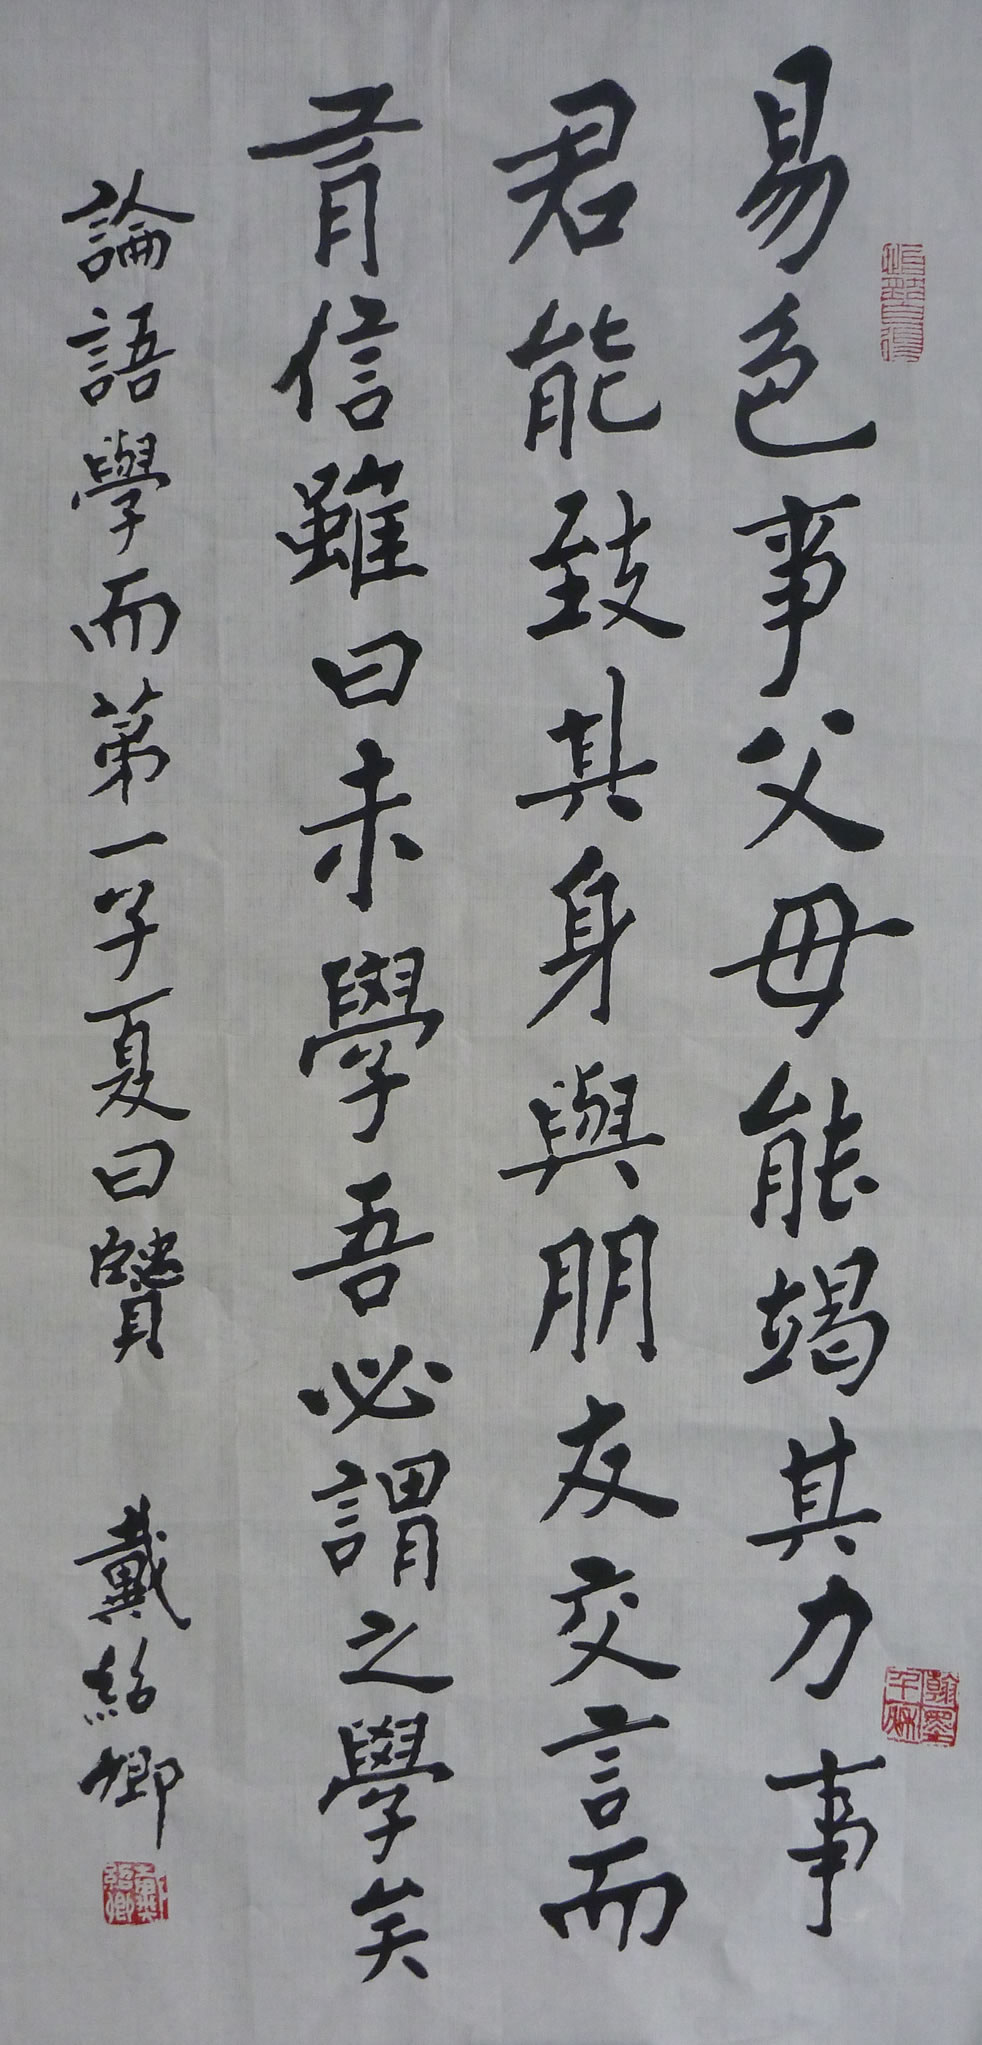 易色事父母能竭其力事
君能致其身與朋友交言而
有信雖曰未學吾必謂之學矣
論語學而第一子夏曰賢 戴紹卿
翰墨千秋
戴紹卿